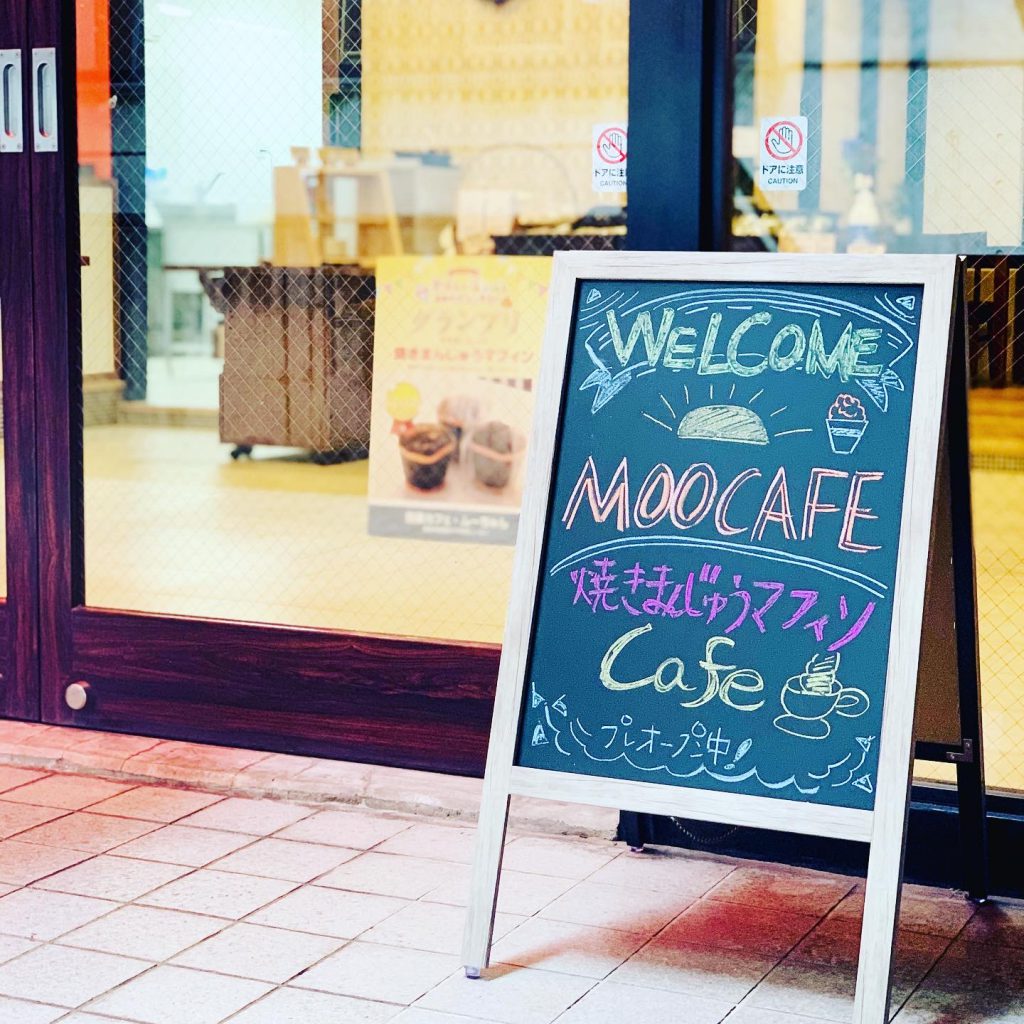 WELCOME
MOOCAFE
焼きまんじゅうマフィン
Cafe
プレオープン中!
ドアに注意
CAUTION
ドアに注意
CAUTION
グランプリ
焼きまんじゅうマフィン